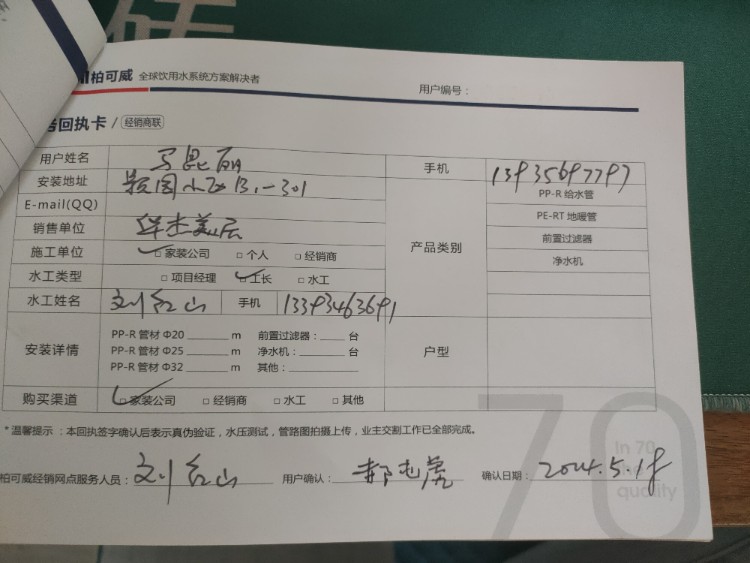 柏可威 全球饮用水系统方案解决者
用户编号：
回执卡 / 经销商联
用户姓名 马昆丽 手机 13935697797
安装地址 小区B1-301
E-mail(QQ)
销售单位 华杰美居
施工单位 ✓□ 家装公司 □ 个人 □ 经销商
水工类型 □ 项目经理 ✓□ 工长 □ 水工
产品类别
PP-R 给水管
PE-RT 地暖管
前置过滤器
净水机
水工姓名 刘红山 手机 13393463691
安装详情
PP-R 管材 Φ20 ______ m 前置过滤器：____ 台
PP-R 管材 Φ25 ______ m 净水机：____ 台
PP-R 管材 Φ32 ______ m 其他：______
户型
购买渠道 ✓□ 家装公司 □ 经销商 □ 水工 □ 其他
*温馨提示：本回执签字确认后表示真伪验证，水压测试，管路图拍摄上传，业主交割工作已全部完成。
70
In 70
quality
柏可威经销网点服务人员：刘红山 用户确认：郝 确认日期：2024.5.18